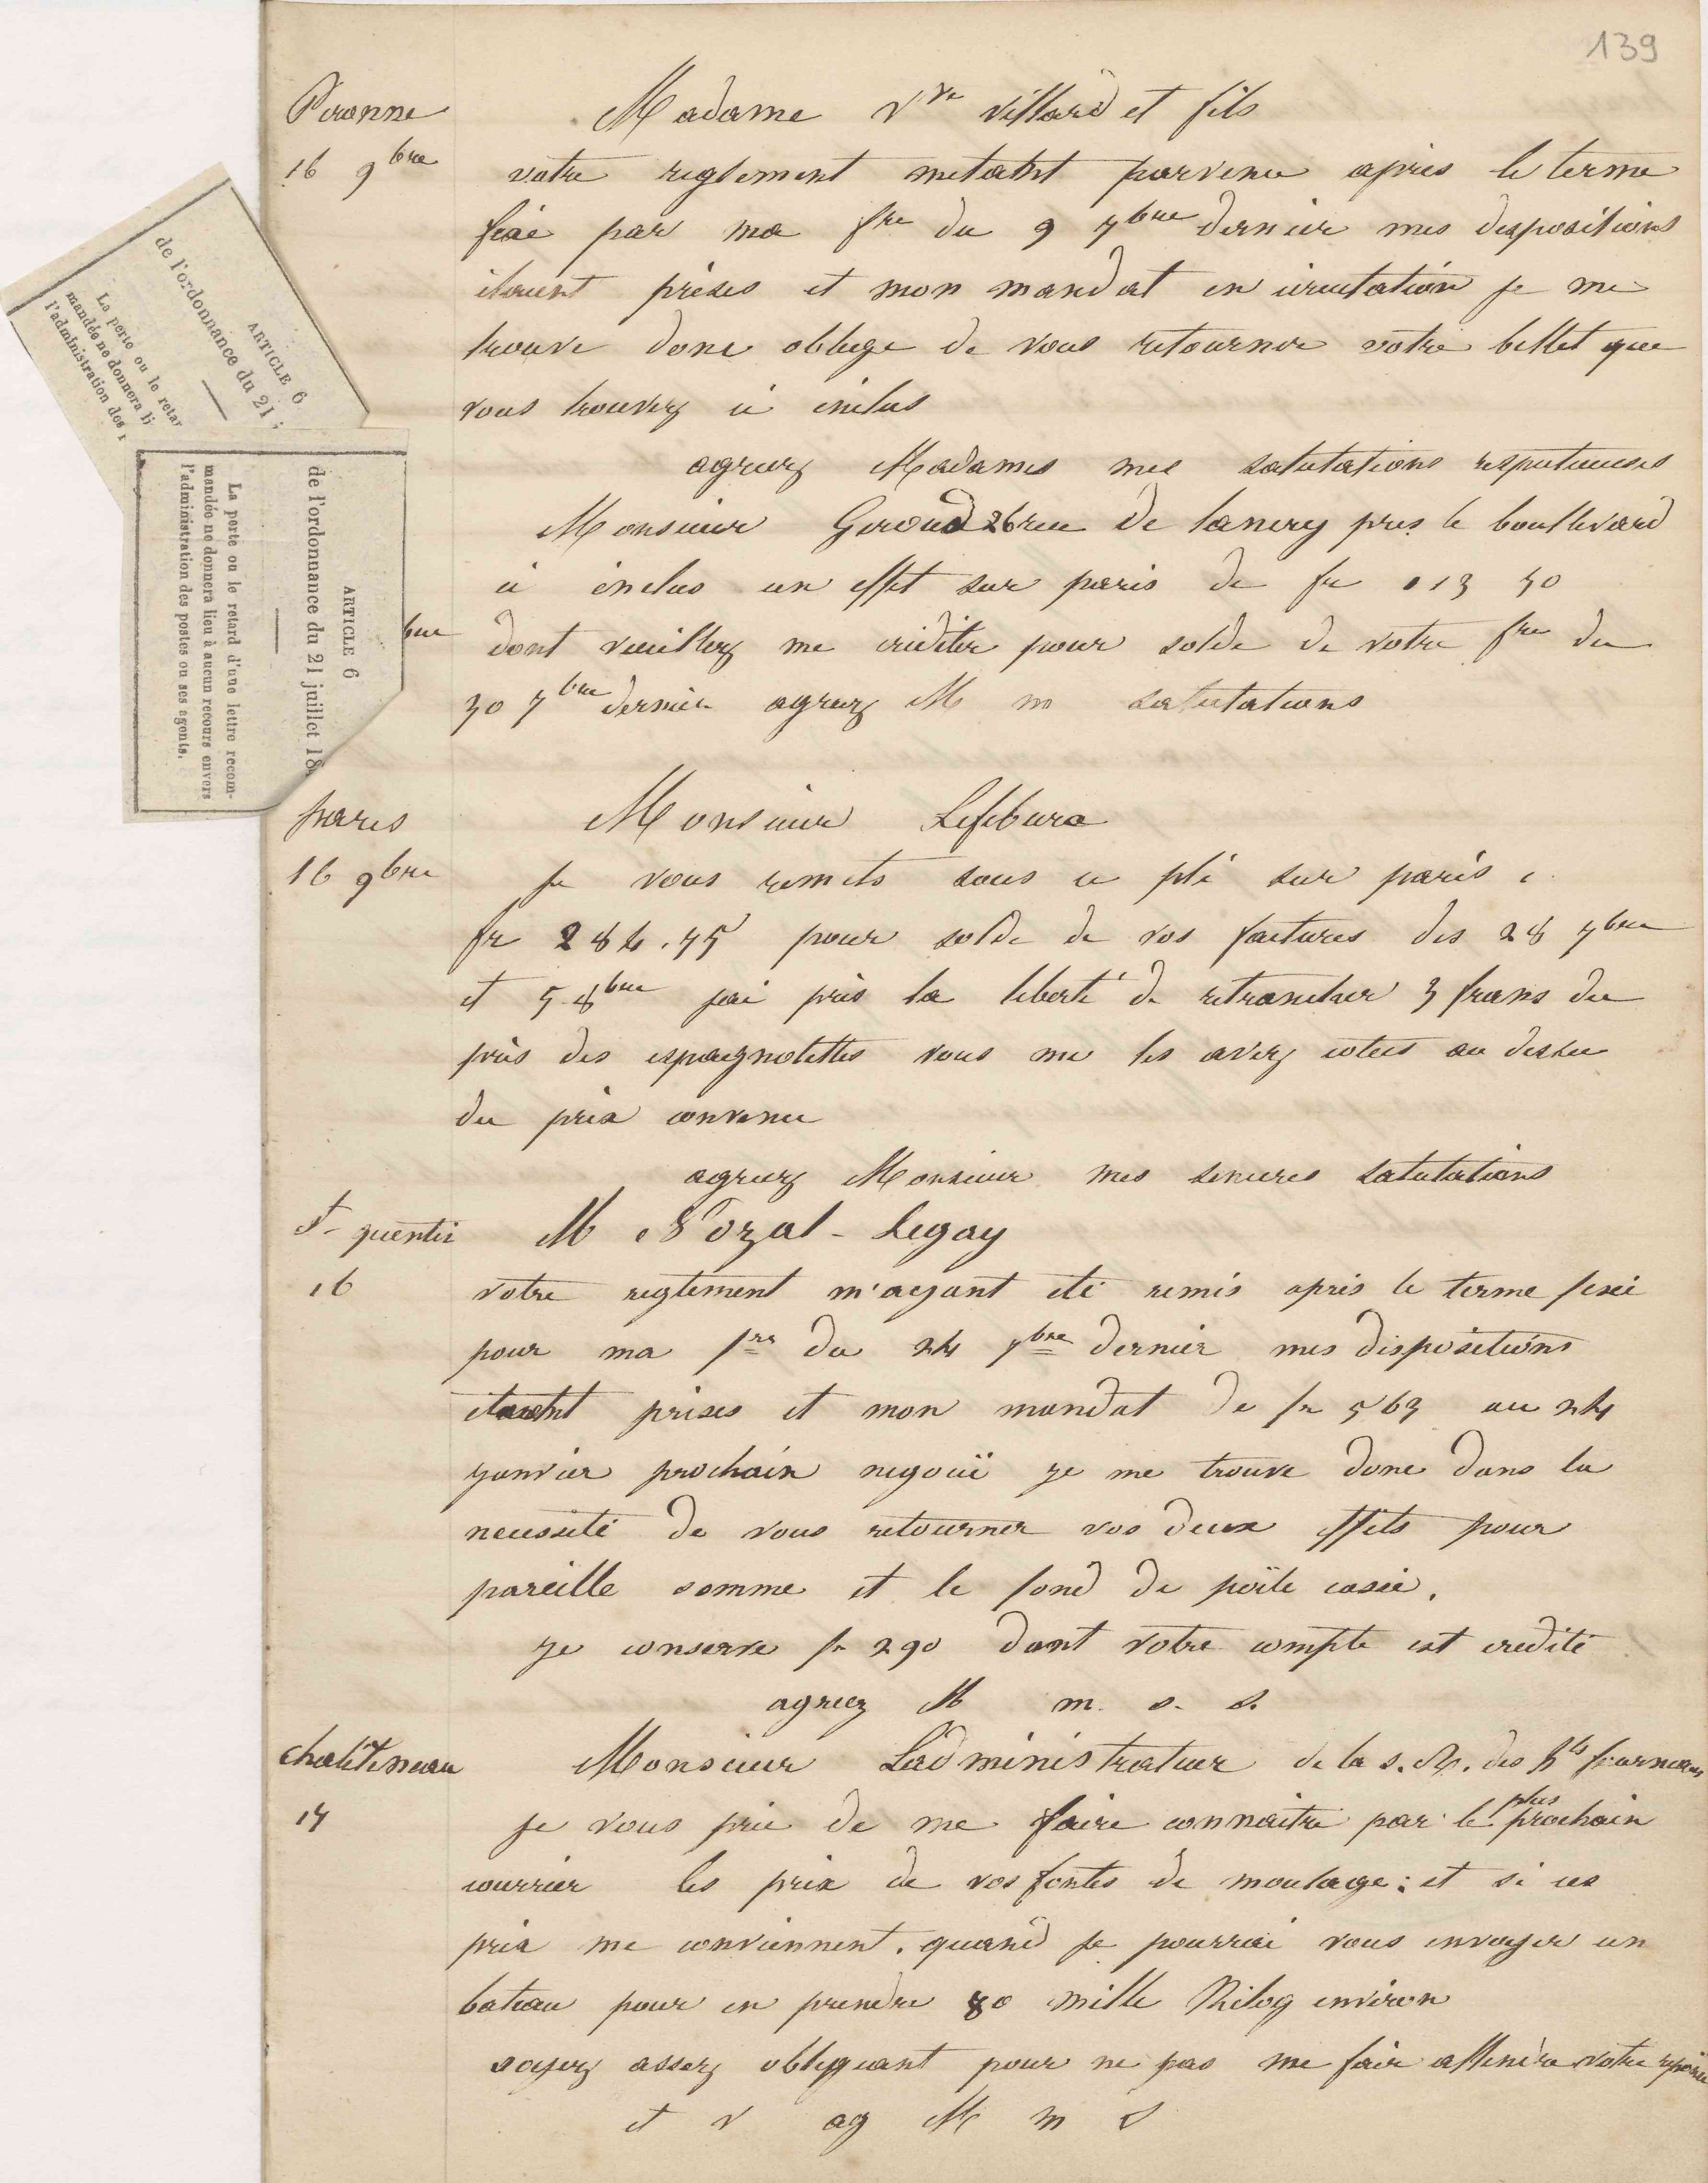 139
Peronne
Madame Vve Villard et fils
16 9bre
votre reglement metant parvenu apres le terme
fixé par ma fre du 9 7bre dernier mes dispositions
etaient prises et mon mandat en circulation je me
trouve donc obligé de vous retourner votre billet que
vous trouverez ci inclus
agreez Madames mes salutations respectueuses
Monsieur Geroud 26 rue de lancry pres le boullevard
ci inclus un effet sur paris de fr 113 50
bre
dont veuillez me crediter pour solde de votre fre du
30 7bre dernier agreez M m salutations
paris
Monsieur Lefebure
16 9bre
je vous remets sous ce pli sur paris
fr 284.75 pour solde de vos factures des 28 7bre
et 5 8bre jai pris la liberté de retrancher 3 frans du
prix des espagnolettes vous me les avez cotees au dessu
du prix convenu
agreez Monsieur mes sinceres salutations
St quentin
M Nozal-Legay
16
votre reglement m'ayant été remis apres le terme fixé
pour ma fre du 24 7bre dernier mes dispositions
etaient prises et mon mandat de fr 563 au 24
janvier prochain negocié je me trouve donc dans la
necessité de vous retourner vos deux effets pour
pareille somme et le fond de poële cassé.
je conserve fr 290 dont votre compte est credité
agreez M m. s. s.
chatelineau
Monsieur Ladministrateur de la s. des hts fourneaux
17
je vous prie de me faire connaitre par le plus prochain
courrier les prix de vos fontes de moulage: et si ces
prix me conviennent. quand je pourrai vous envoyer un
bateau pour en prendre 80 mille Kilog environ
soyez assez obligeant pour ne pas me fair attendre votre reponse
et v ag M m s
ARTICLE 6
de l'ordonnance du 21
La perte ou le retar
mandée ne donnera li
l'administration des
ARTICLE 6
de l'ordonnance du 21 juillet 18
La perte ou le retard d'une lettre recom-
mandée ne donnera lieu à aucun recours envers
l'administration des postes ou ses agents.